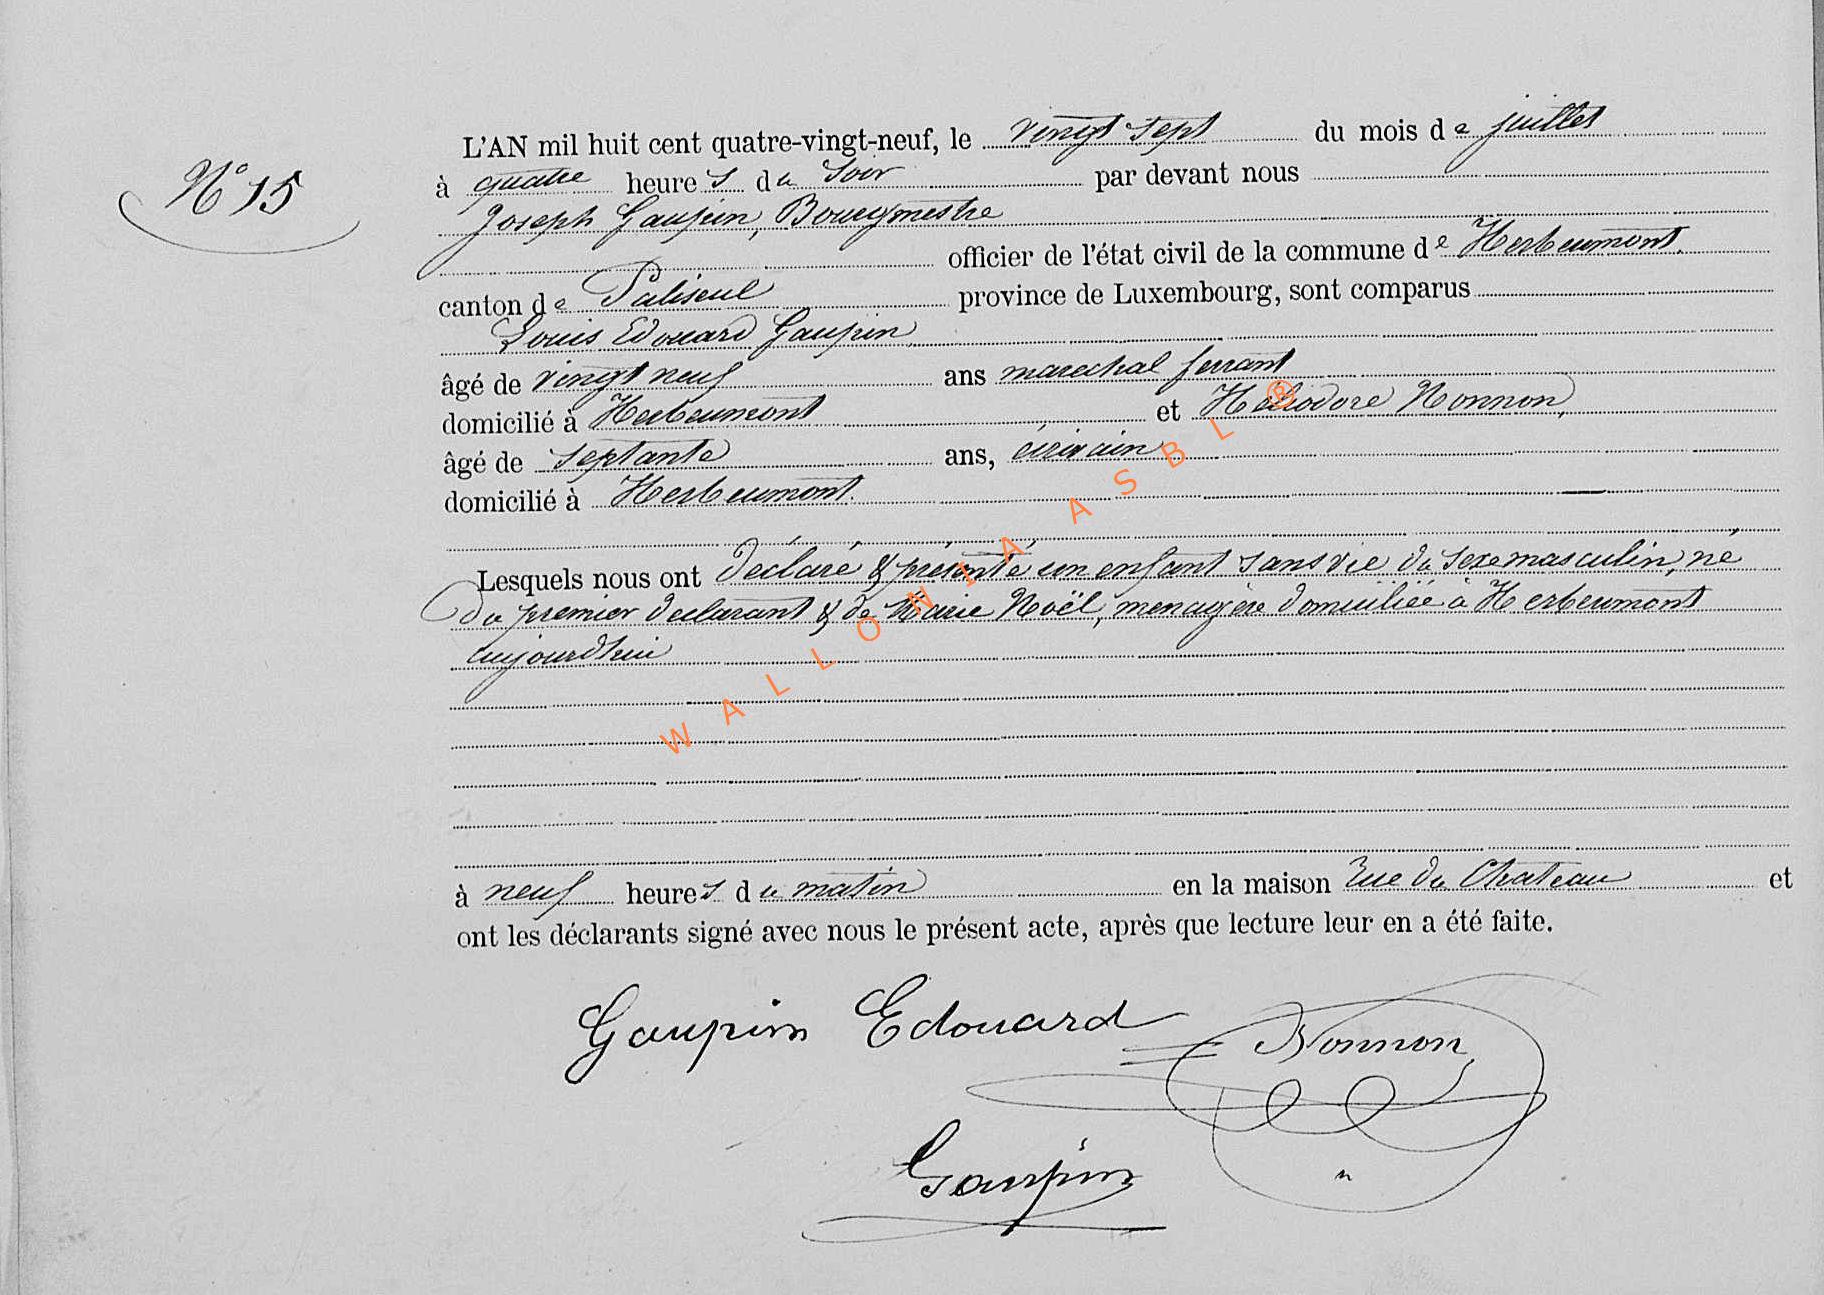 N° 15
L'AN mil huit cent quatre-vingt-neuf, le vingt sept du mois de juillet
à quatre heures du soir par devant nous
Joseph Gaupin, Bourgmestre
officier de l'état civil de la commune de Herbeumont,
canton de Paliseul province de Luxembourg, sont comparus
Louis Edouard Gaupin
âgé de vingt neuf ans marechal ferrant
domicilié à Herbeumont et Héliodore Nonnon,
âgé de septante ans, écrivain
domicilié à Herbeumont.
Lesquels nous ont déclaré & présenté un enfant sans vie du sexe masculin, né
du premier declarant & de Marie Noël, menagère domiciliée à Herbeumont
aujourdhui
à neuf heures du matin en la maison rue du Chateau et
ont les déclarants signé avec nous le présent acte, après que lecture leur en a été faite.
Gaupin Edouard
Nonnon
Gaupin
WALLONIA ASBL ®